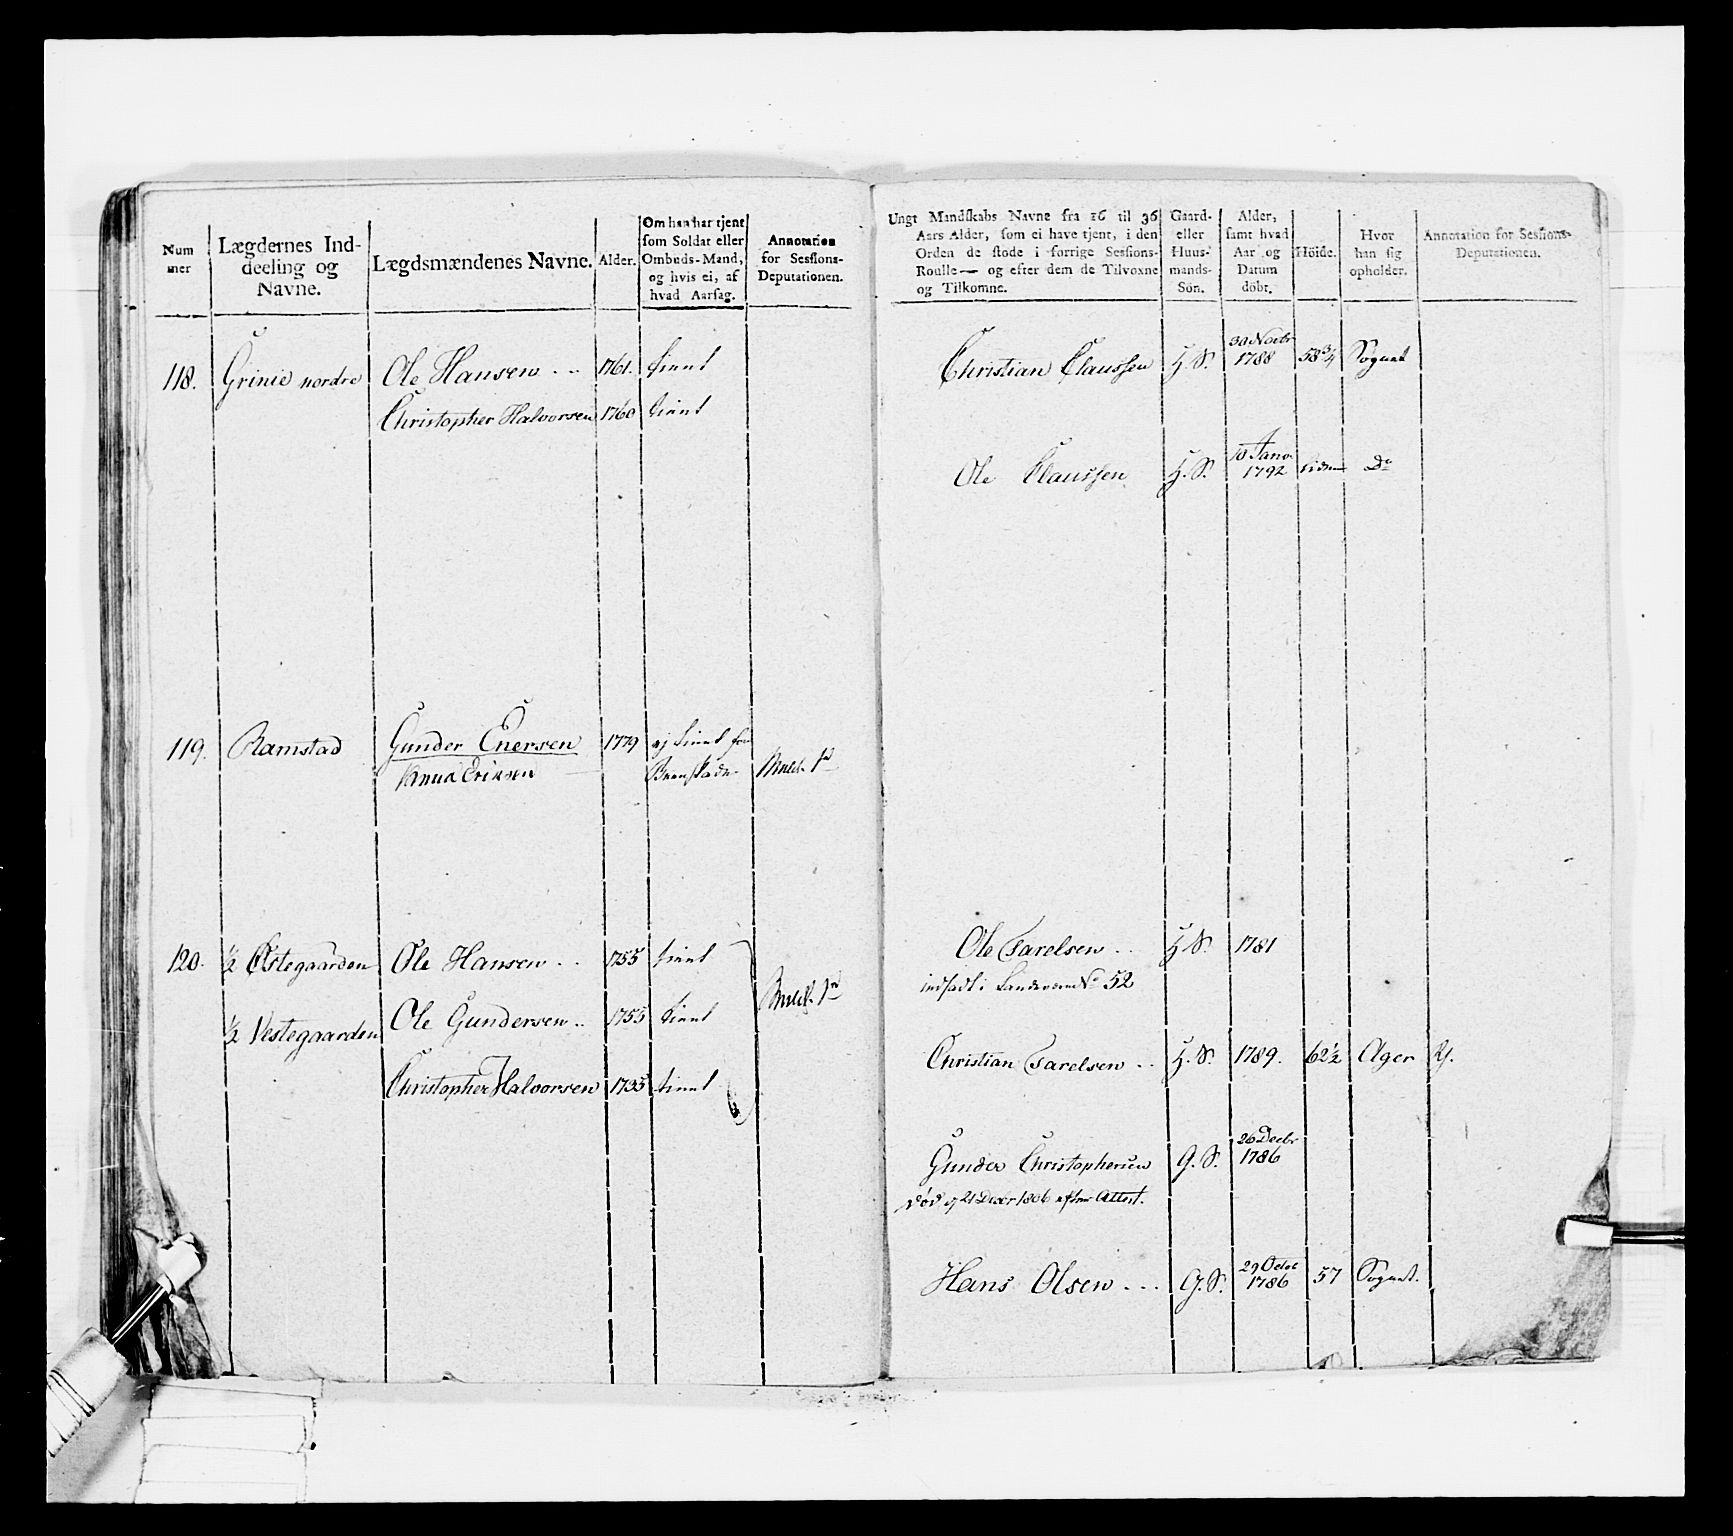 Num
mer
Lægdernes Ind-
deeling og
Navne.
Lægdsmændenes Navne.
Alder.
Om han har tjent
som Soldat eller
Ombuds-Mand,
og hvis ei, af
hvad Aarsag.
Annotation
for Sessions-
Deputationen.
Ungt Mandskabs Navne fra 16 til 36
Aars Alder, som ei have tjent, i den
Orden de stode i forrige Sessions-
Roulle — og efter dem de Tilvoxne
og Tilkomne.
Gaard-
eller
Huus-
mands-
Sön.
Alder,
samt hvad
Aar og
Datum
döbt.
Höide.
Hvor
han sig
opholder.
Annotation for Sessions-
Deputationen.
118. Grinie nordre Ole Hansen .. 1761. tient
Christopher Halvorsen 1760 tient
119. Ramstad Gunder Enersen 1779 ej tient for
Knud Erixsen
120. ½ Østegaarden Ole Hansen .. 1755 tient
½ Vestegaarden Ole Gundersen .. 1753 tient
Christopher Halvorsen 1735 tient
Christian Claussen H. S. 30 Novbr 1788 58¾ Sognet
Ole Claussen H. S. 10 Janv. 1792 liden Do
Ole Tarelsen .. H. S. 1781
indsadt i Landeværn No 52
Christian Tarelsen .. H. S. 1789. 62½ Ager
Gunder Christophersen G. S. 26 Decbr 1786
död d 21 Decbr 1806 efter Attest.
Hans Olsen ... G. S. 29 Octbr 1786 57 Sognet.